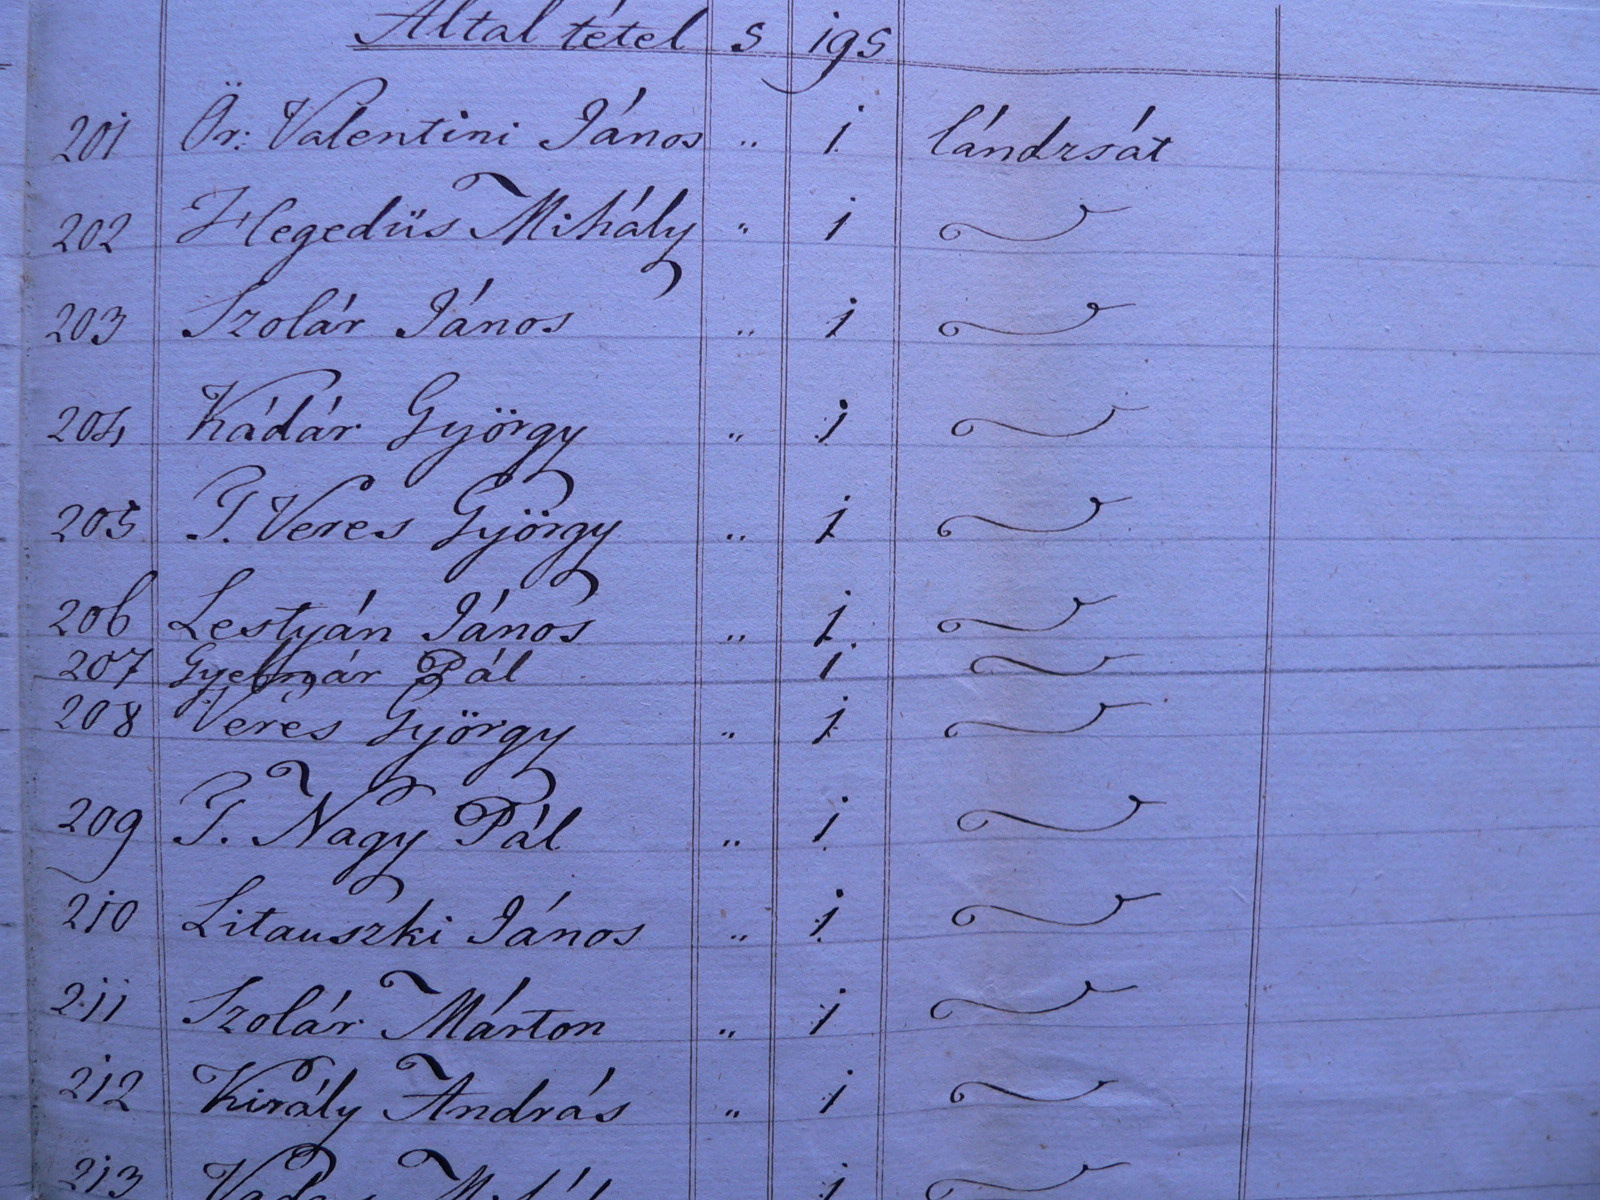 Által tétel s igs
201 Ör: Valentini János " 1 lándzsát
202 Hegedüs Mihály " 1
203 Szolár János " 1
204 Kádár György " 1
205 P. Veres György " 1
206 Lestyán János " 1
207 Gyelmár Pál 1
208 Veres György " 1
209 P. Nagy Pál " 1
210 Litauszki János " 1
211 Szolár Márton " 1
212 Király András " 1
213 1